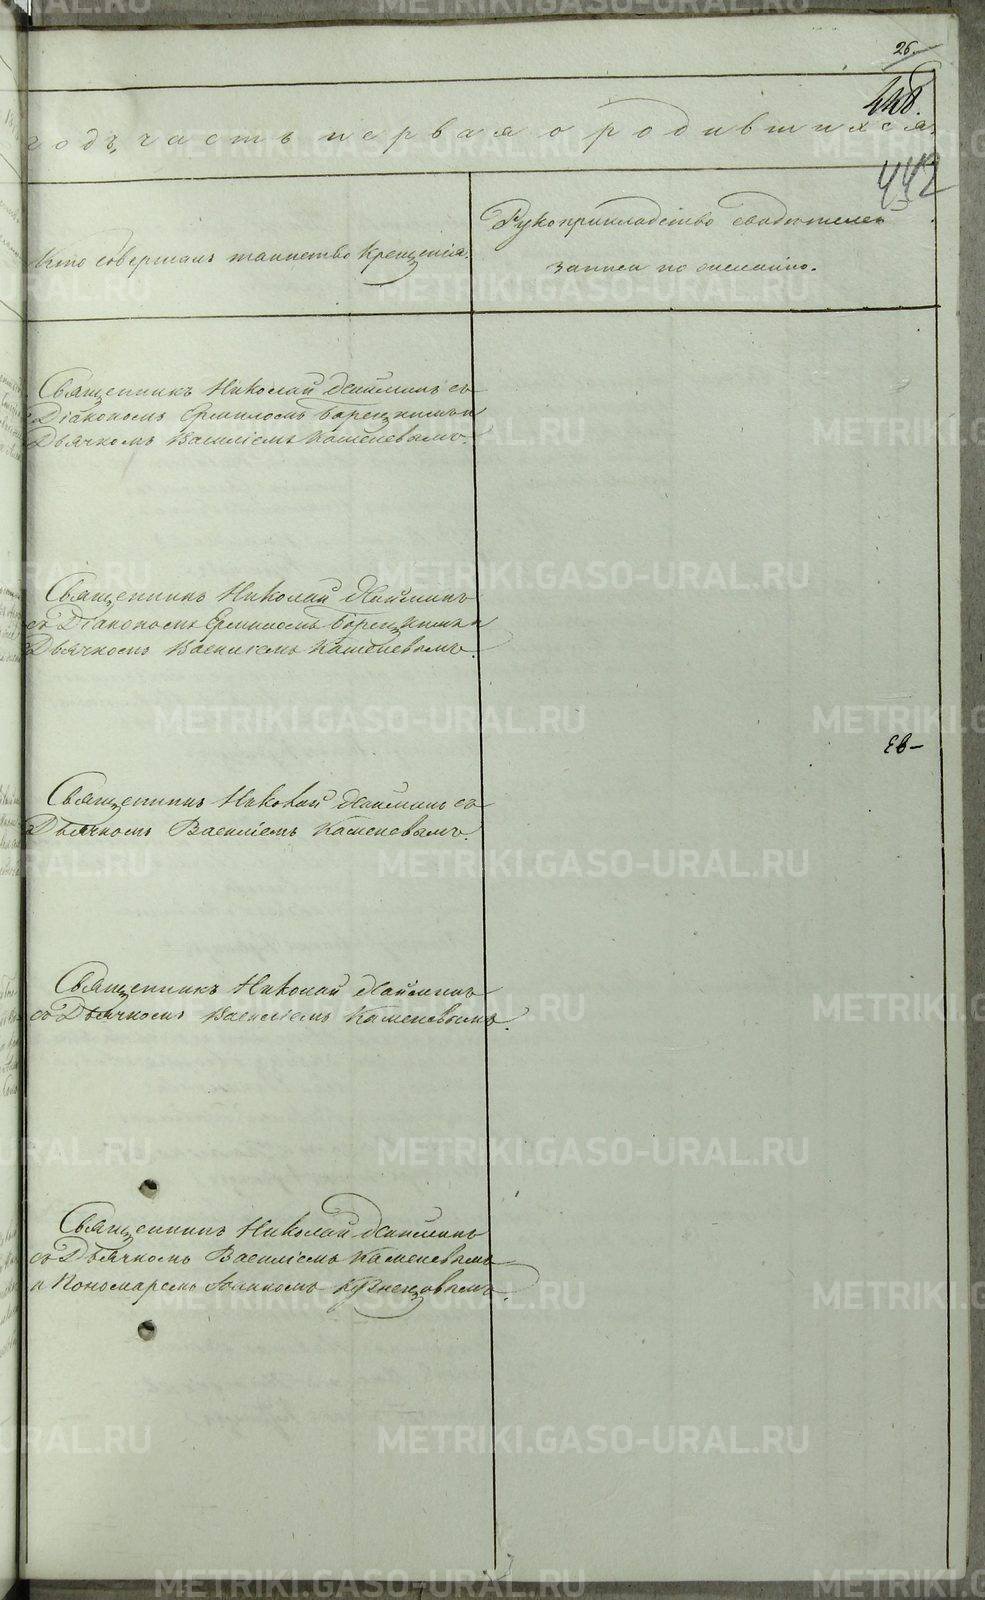 26.
448.
годъ, часть первая о родившихся.
442
Кто совершалъ таинство крещенія.
Рукоприкладство свидѣтелей
записи по желанію.
Священникъ Николай съ
Діакономъ Ермиломъ и
Дьячкомъ Василіемъ Каменевымъ.
Священникъ Николай
съ Діакономъ Ермиломъ и
Дьячкомъ Василіемъ Каменевымъ.
ев-
Священникъ Николай съ
Дьячкомъ Василіемъ Каменевымъ.
Священникъ Николай
съ Дьячкомъ Василіемъ Каменевымъ.
Священникъ Николай
съ Дьячкомъ Василіемъ Каменевымъ
и Пономаремъ Кузнецовымъ.
METRIKI.GASO-URAL.RU